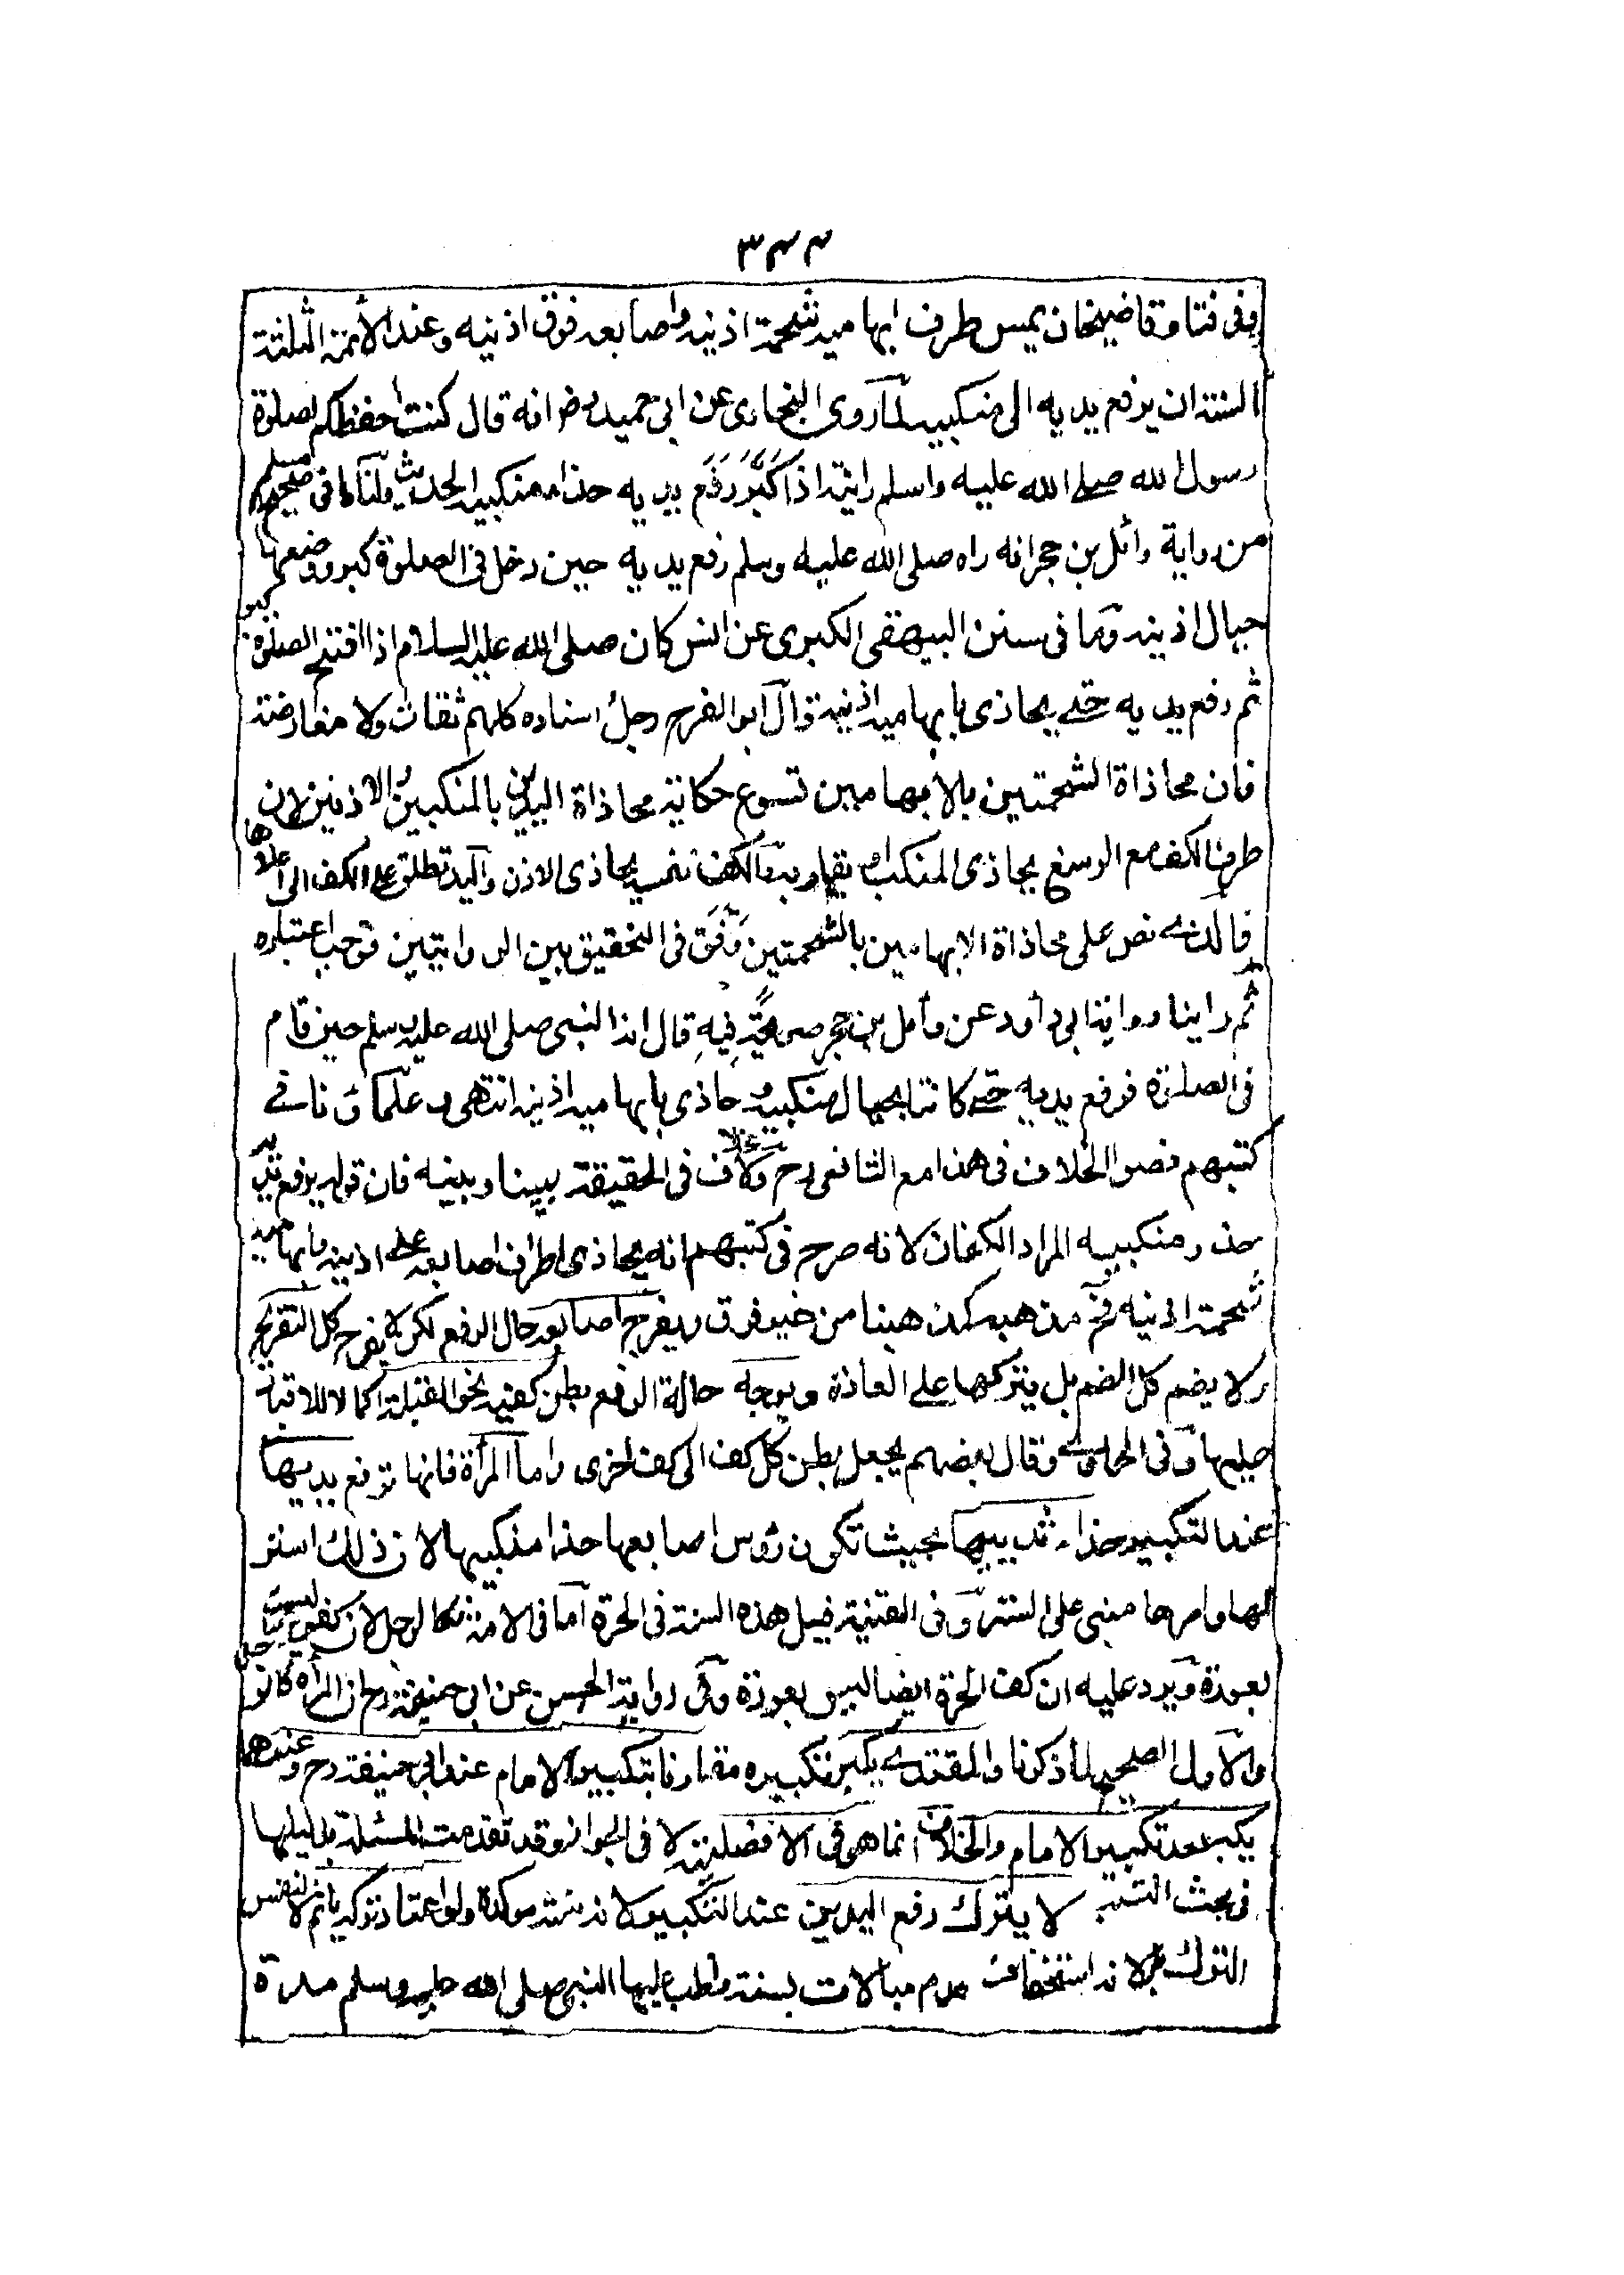 ٣٣٣
وفى فتاوى قاضيخان يمس طرف ابهاميه شحمة اذنيه واصابعه فوق اذنيه وعند الأئمة الثلثة
السنة ان يرفع يديه الى منكبيه لما روى البخارى عن ابى حميد رض انه قال كنت احفظكم لصلوة
رسول الله صلى الله عليه واسلم رايته اذا كَبَّرَ رَفَعَ يديه حذاء منكبيه الحديث ولنا ما فى صحيح مسلم
من رواية وائل بن حجر انه راه صلى الله عليه وسلم رفع يديه حين دخل فى الصلوة كبر ووضعهما
حيال اذنيه وما فى سنن البيهقى الكبرى عن انس كان صلى الله عليه السلام اذا افتتح الصلوة كبر
ثم رفع يديه حتى يحاذى بابهاميه اذنيه قال ابو الفرج رجال اسناده كلهم ثقات ولا معارضة
فان محاذاة الشحمتين بالابهامين تسوع حكاية محاذاة اليدين بالمنكبين والاذنين لان
طرف الكف مع الرسغ يحاذى المنكب او يقاربه والكف نفسه يحاذى الاذن واليد تطلق على الكف الى اعلاها
فالذى نص على محاذاة الابهامين بالشحمتين وَفَّقَ فى التحقيق بين الروايتين فوجب اعتباره
ثم راينا رواية ابى داود عن وائل بن حجر صريحة فيه قال انه النبى صلى الله عليه وسلم حين قام
فى الصلوة فرفع يديه حتى كانتا بحيال منكبيه وحاذى بابهاميه اذنيه انتهى وعلماؤنا فى
كتبهم نصبوا الخلاف فى هذا مع الشافعى رح ولا خلاف فى الحقيقة بيننا وبينه فان قوله يرفع يديه
حذو منكبيه المراد الكفان لانه صرح فى كتبهم انه يحاذى اطراف اصابعه على اذنيه وابهاميه
شحمة اذنيه فح مذهبه كمذهبنا من غير فرق ويفرج اصابعه حال الرفع لكن لا يفرج كل التفريج
ولا يضم كل الضم بل يتركها على العادة ويوجه حالة الرفع بطن كفيه نحو القبلة اكمالا للاقبال
عليها وفى الحاوى وقال بعضهم يجعل بطن كل كف الى كف اخرى واما المرأة فانها ترفع يديها
عند التكبير حذاء ثدييها بحيث تكون رؤس اصابعها حذا منكبيها لان ذلك استر
لها وامرها مبنى على الستر وفى القنية قيل هذه السنة فى الحرة اما فى الامة فكالرجل لان كفها ليست
بعورة ويرد عليه ان كف الحرة ايضا ليس بعورة وفى رواية الحسن عن ابى حنيفة رح ان المرأة كالرجل
والاول الصحيح لما ذكرنا والمقتدى يكبر تكبيره مقارنا بتكبير الامام عند ابى حنيفة رح وعندهما
يكبر بعد تكبير الامام والخلاف انما هو فى الافضلية لا فى الجواز وقد تقدمت المسئلة بدليلها
فى بحث النية لا يترك رفع اليدين عند التكبير لانه سنة موكدة ولو اعتاد تركه ياثم لا لنفس
الترك بل لانه استخفاف عدم مبالات بسنة واظب عليها النبى صلى الله عليه وسلم مدة